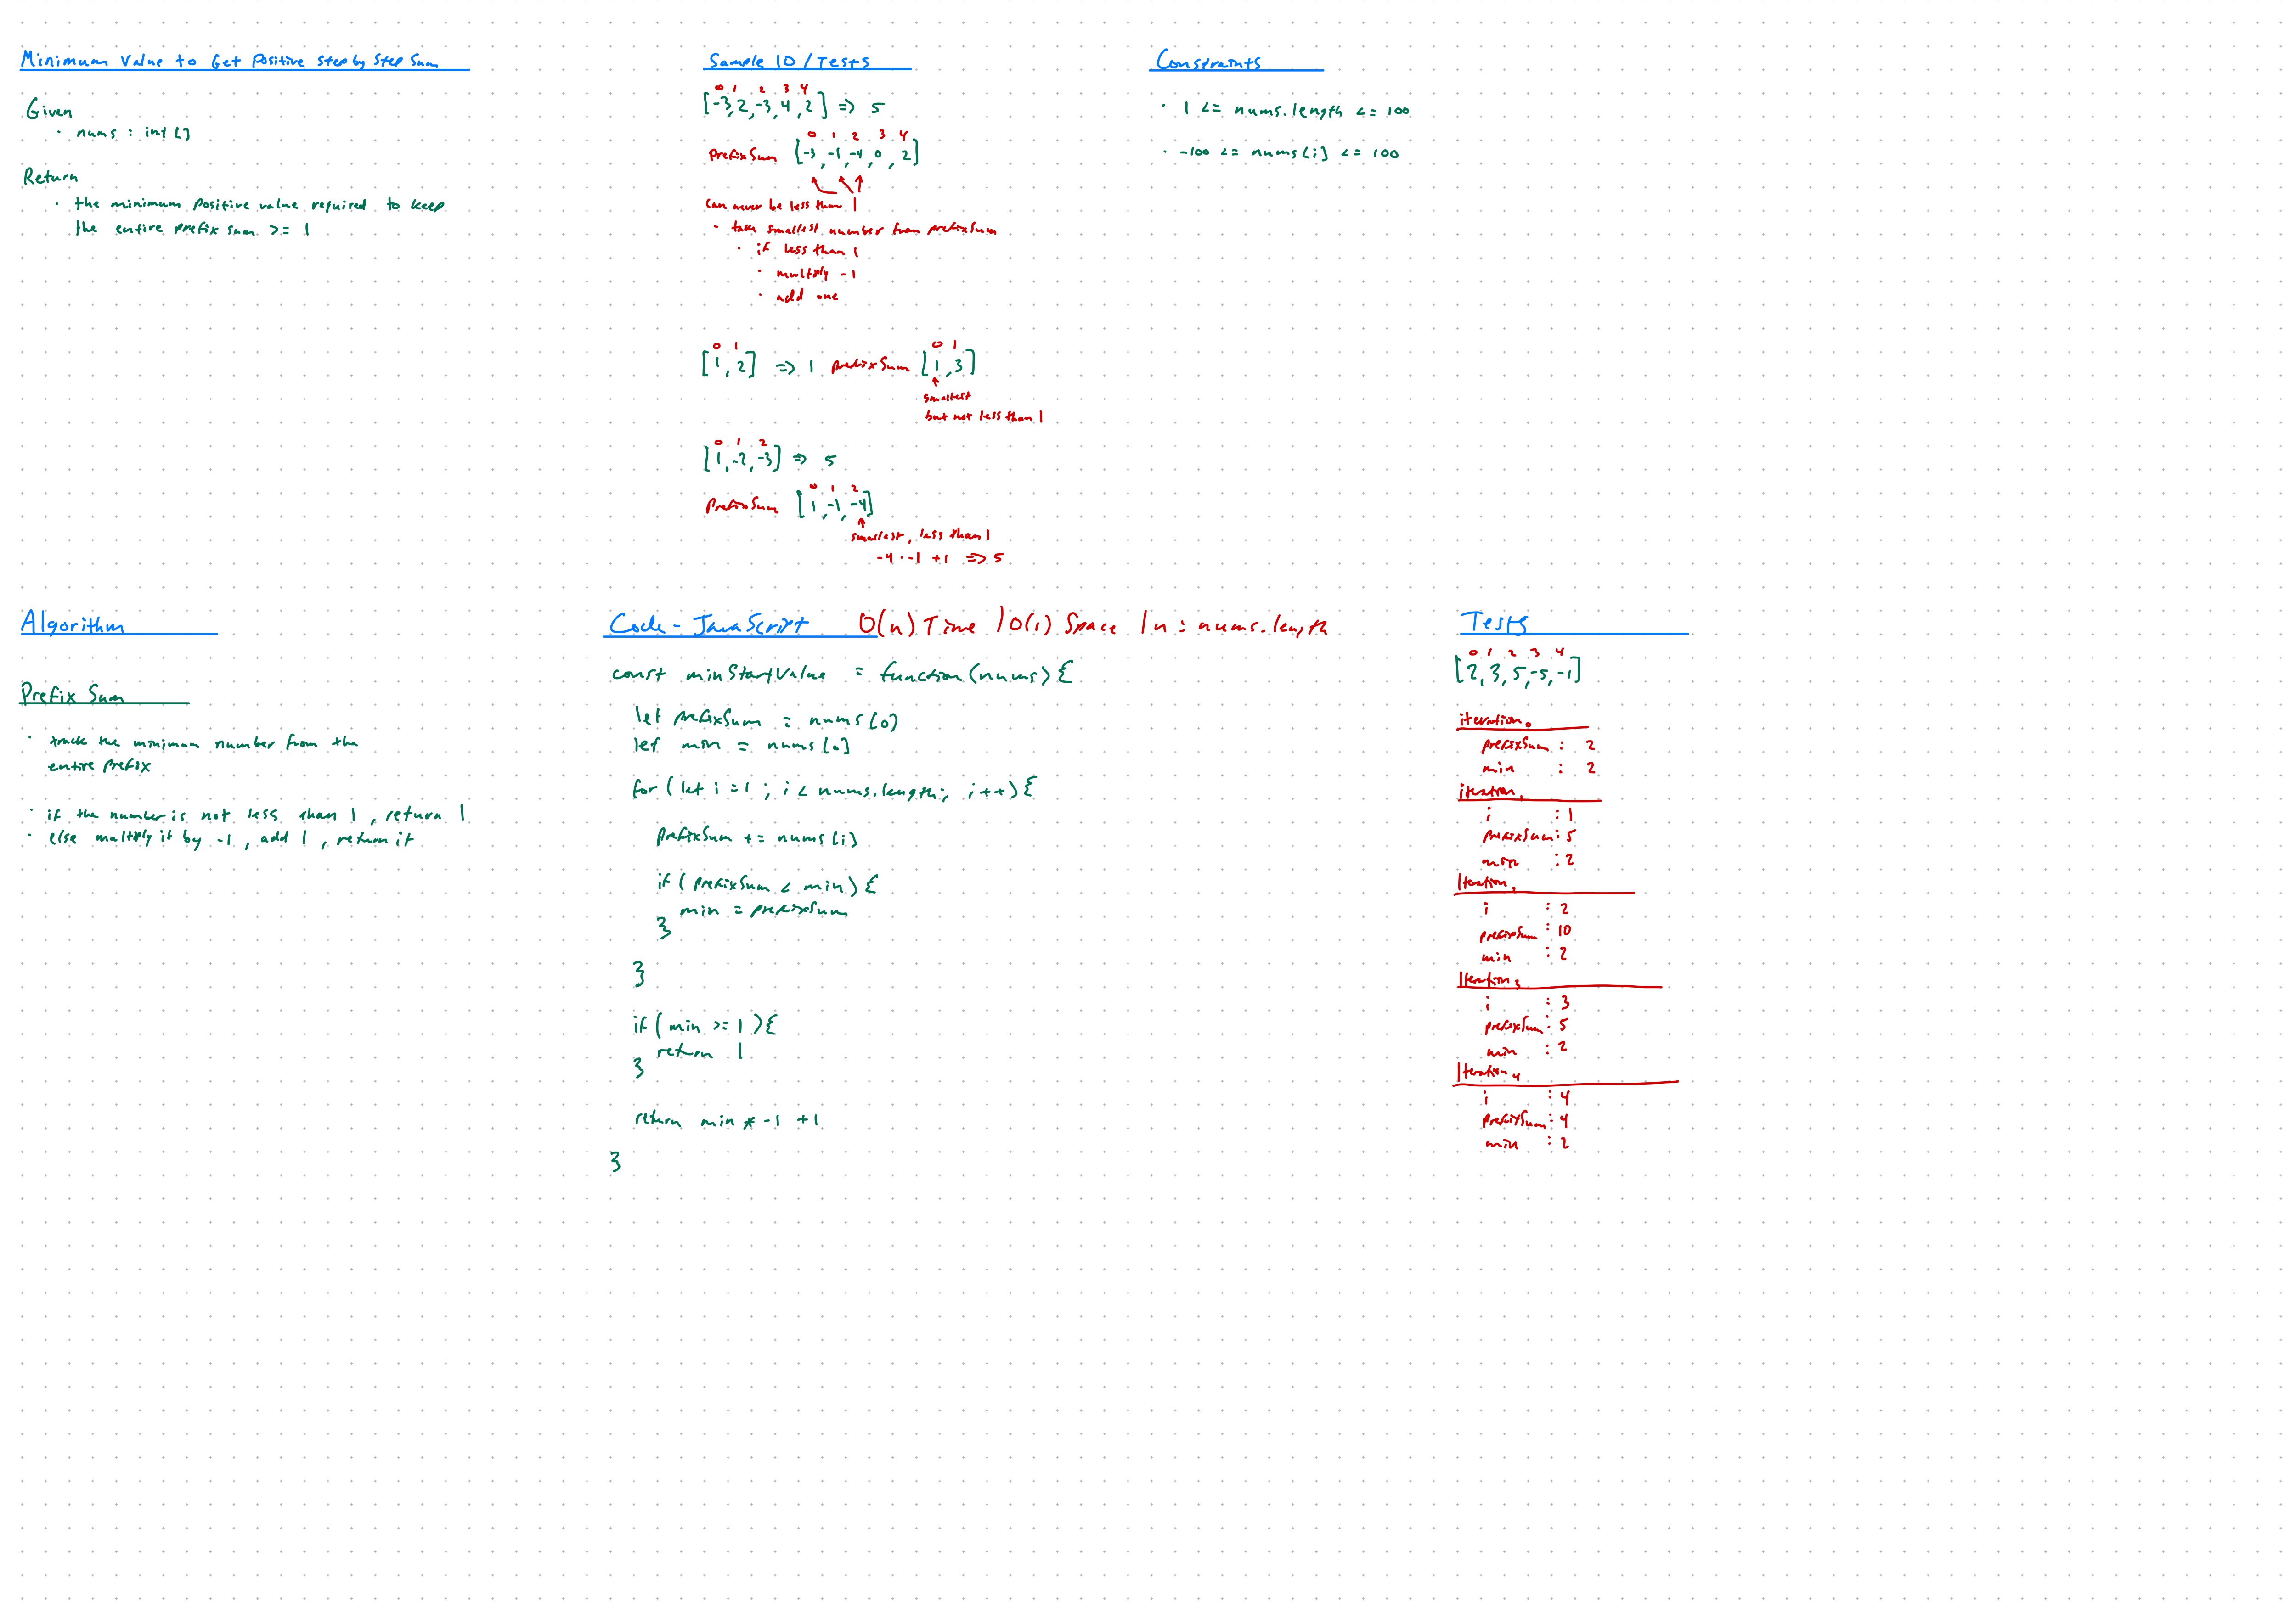 Minimum Value to Get Positive Step by Step Sum
Given
· nums : int []
Return
· the minimum positive value required to keep
the entire prefix sum >= 1
Sample IO / Tests
0 1 2 3 4
[-3, 2, -3, 4, 2] => 5
0 1 2 3 4
prefixSum [-3, -1, -4, 0, 2]
can never be less than 1
- take smallest number from prefixSum
· if less than 1
· multiply -1
· add one
0 1 0 1
[1, 2] => 1 prefixSum [1, 3]
smallest
but not less than 1
0 1 2
[1, -2, -3] => 5
0 1 2
prefixSum [1, -1, -4]
smallest, less than 1
-4 · -1 +1 => 5
Constraints
· 1 <= nums.length <= 100
· -100 <= nums[i] <= 100
Algorithm
Prefix Sum
· track the minimum number from the
entire prefix
· if the number is not less than 1, return 1
· else multiply it by -1, add 1, return it
Code - JavaScript O(n) Time | O(1) Space | n = nums.length
const minStartValue = function(nums) {
let prefixSum = nums[0]
let min = nums[0]
for (let i = 1; i < nums.length; i++) {
prefixSum += nums[i]
if (prefixSum < min) {
min = prefixSum
}
}
if (min >= 1) {
return 1
}
return min * -1 +1
}
Tests
0 1 2 3 4
[2, 3, 5, -5, -1]
iteration 0
prefixSum : 2
min : 2
iteration 1
i : 1
prefixSum : 5
min : 2
Iteration 2
i : 2
prefixSum : 10
min : 2
Iteration 3
i : 3
prefixSum : 5
min : 2
Iteration 4
i : 4
prefixSum : 4
min : 2